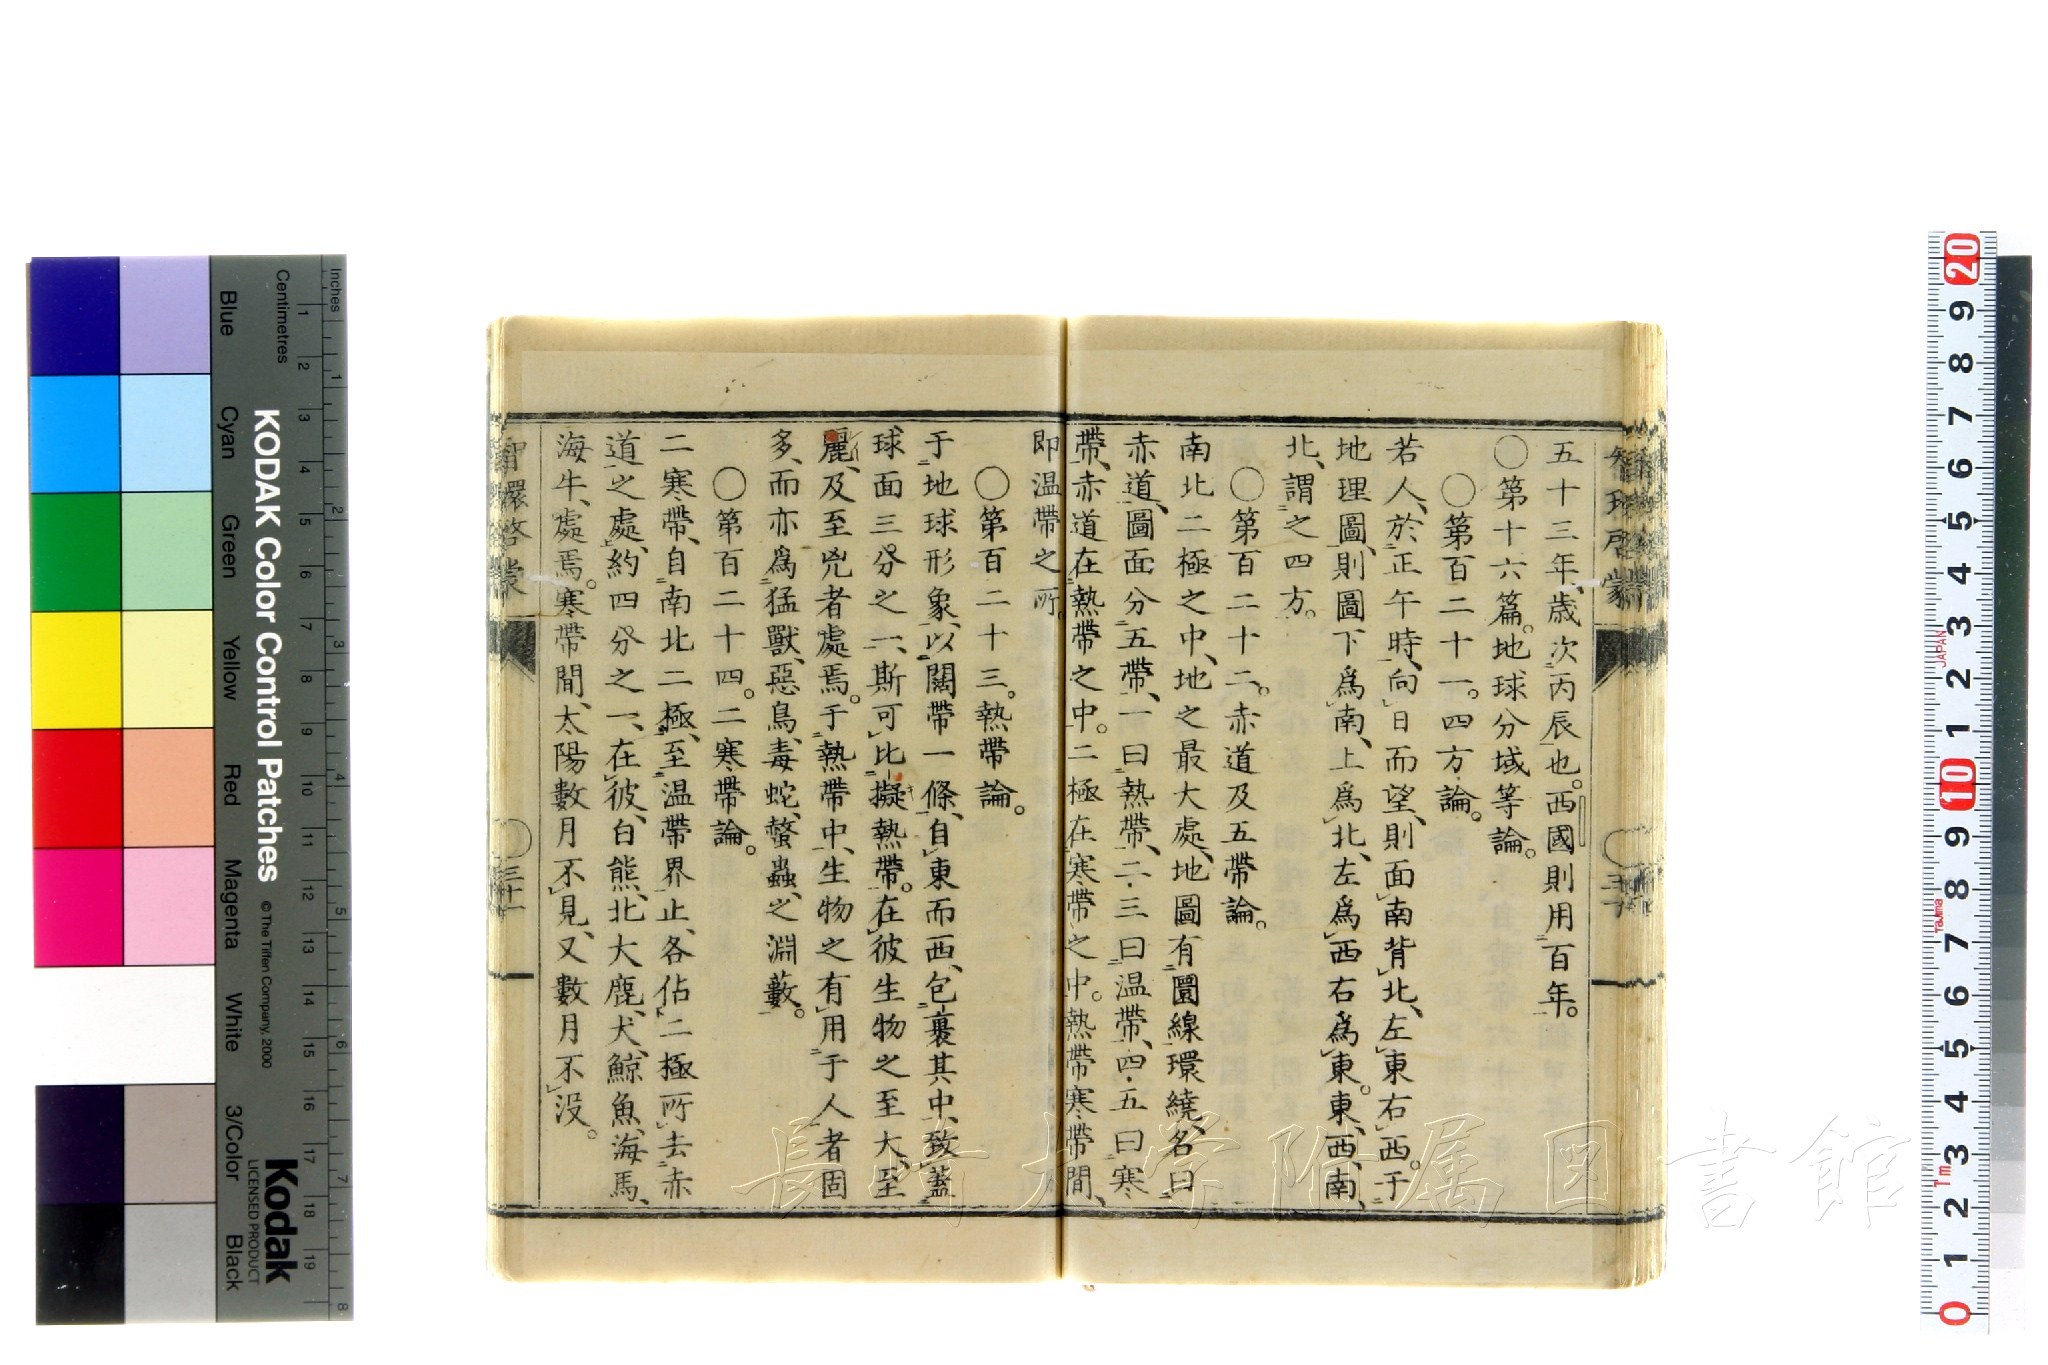 五十三年、歳次丙辰也。西國則用百年。
○第十六篇。地球分域等論。
○第百二十一。四方論。
若人、於正午時、向日而望、則面南背北、左東右西。于
地理圖、則圖下爲南、上爲北、左爲西右爲東。東、西、南、
北、謂之四方。
○第百二十二。赤道及五帶論。
南北二極之中、地之最大處、地圖有圜線環繞、名曰
赤道、圖面分五帶、一曰熱帶、二・三曰温帶、四・五曰寒
帶、赤道在熱帶之中。二極在寒帶之中。熱帶寒帶間、
即温帶之所。
○第百二十三。熱帶論。
于地球形象、以闊帶一條、自東而西、包裹其中、致蓋
球面三分之一、斯可比擬熱帶。在彼生物之至大、至
麗、及至兇者處焉。于熱帶中、生物之有用于人者固
多、而亦爲猛獸、惡鳥、毒蛇、螫蟲、之淵藪。
○第百二十四。二寒帶論。
二寒帶、自南北二極、至温帶界止、各佔二極所去赤
道之處、約四分之一、在彼、白熊、北大鹿、犬、鯨魚、海馬、
海牛、處焉。寒帶間、太陽數月不見、又數月不没。
智環啓蒙
三十一
長崎大学附属図書館
KODAK Color Control Patches
© The Tiffen Company, 2000
Kodak
LICENSED PRODUCT
Inches
Centimetres
Blue
Cyan
Green
Yellow
Red
Magenta
White
3/Color
Black
1 2 3 4 5 6 7 8 9 10 11 12 13 14 15 16 17 18 19
1 2 3 4 5 6 7 8
20 9 8 7 6 5 4 3 2 1 10 9 8 7 6 5 4 3 2 1 0
JAPAN
Tajima
Tm